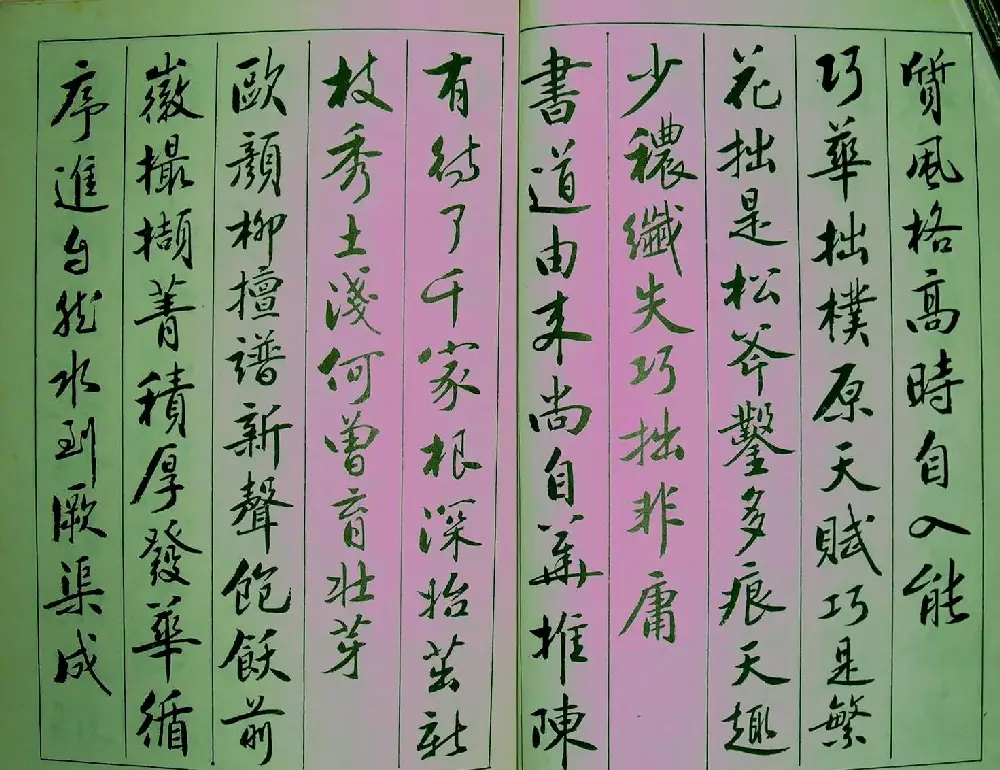 質風格高時自入能
巧華拙樸原天賦巧是繁
花拙是松斧鑿多痕天趣
少穠纖失巧拙非庸
書道由来尚自華推陳
有待了千家根深始茁新
枝秀土淺何曾育壯芽
歐顏柳擅譜新聲飽飫前
徽撮擷菁積厚發華循
序進自然水到厥渠成